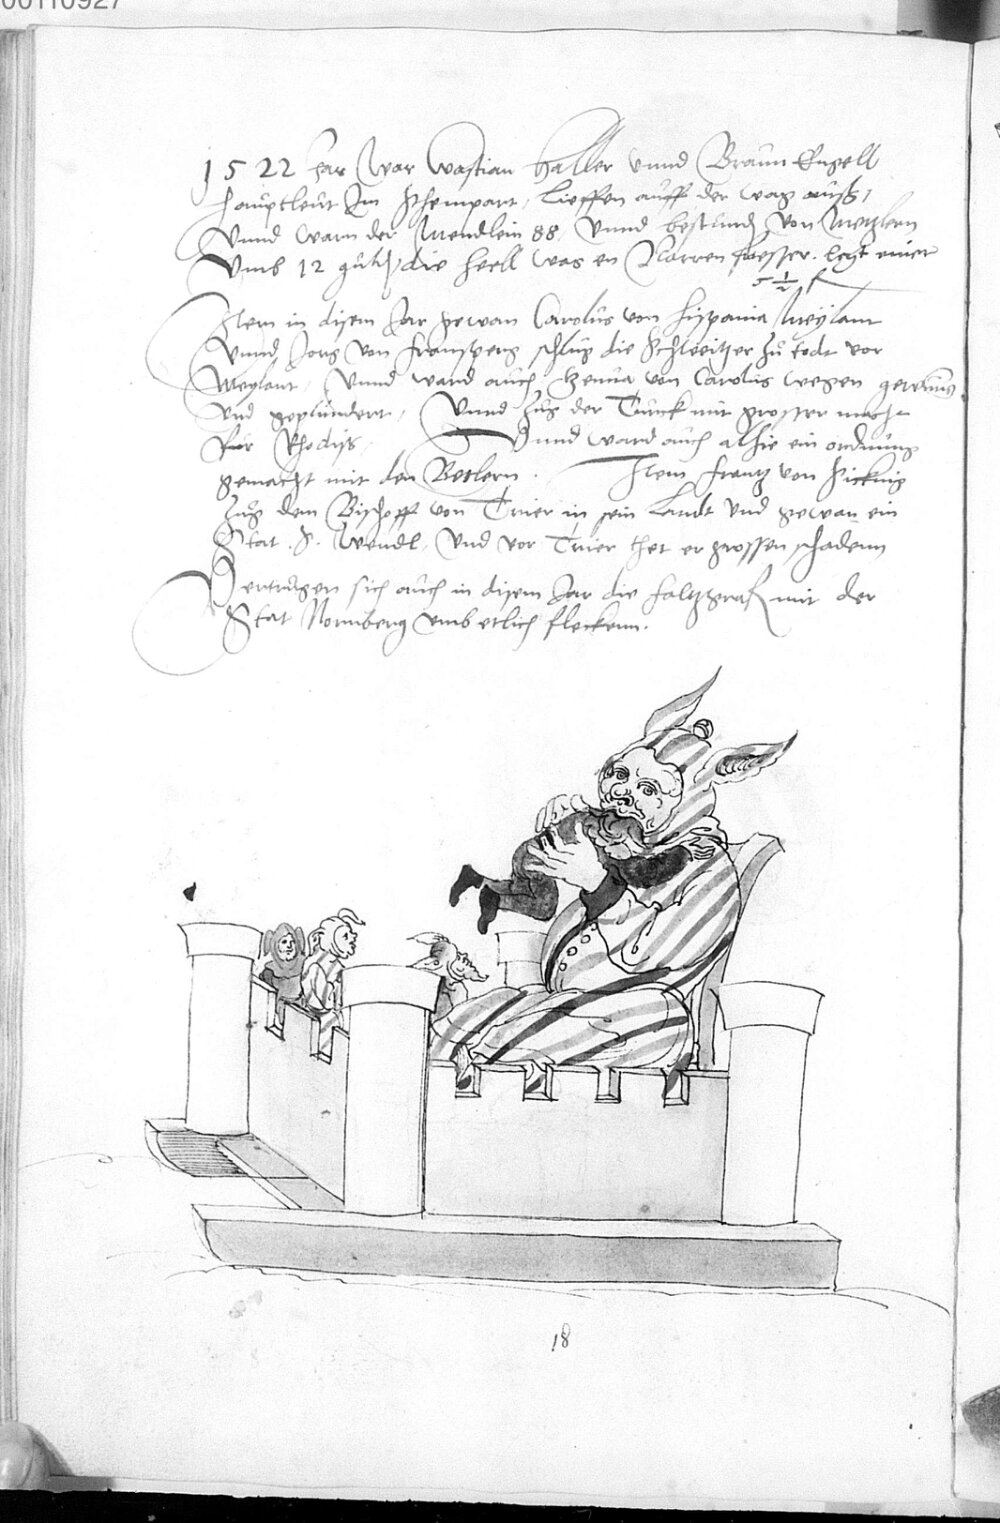 00110927
1522 Jar War Wastian Haller Unnd Braun Engell
Hauptleut Im Schempart, Lieffen auff der wag auß,
Unnd warn der Mendlein 88, Unnd bestunds von Metzlern
Umb 12 guld, die Heell was en Narren fresser. legt einer
5 1/2 f
Item in disem Jar gewan Carolus von hispania Meylant
Unnd Jorg von fronsperg schlug die Schweitzer zu todt vor
Meylant, Unnd ward auch Genua von Carolus wegen gewunnen
Und geplundert, Unnd zug der Turck mit grosser macht
fur Rhodis, Unnd ward auch alhie ein ordnung
gemacht mit den Betlern. Item frantz von Sicking
zug dem Bischoff von Trier in sein Landt Und gewan ein
Stat. S. Wendl, Und vor Trier thet er grossen schadenn
Vertrugen sich auch in disem Jar die faltzgraf mit der
Stat Nornberg umb etlich fleckenn.
18